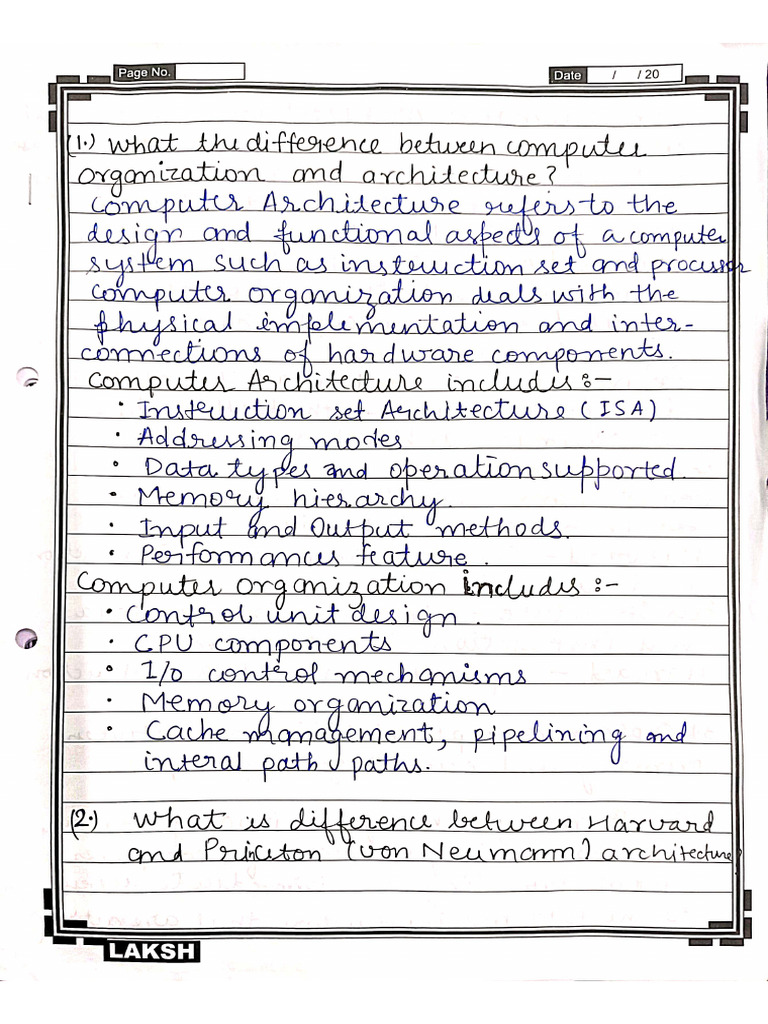 Page No.
Date / / 20
(1.) What the difference between computer
organization and architecture?
Computer Architecture refers to the
design and functional aspects of a computer
system such as instruction set and processor
computer organization deals with the
physical implementation and inter-
connections of hardware components.
Computer Architecture includes :-
• Instruction set Architecture (ISA)
• Addressing modes
• Data types and operation supported
• Memory hierarchy.
• Input and Output methods.
• Performances feature.
Computer organization includes :-
• Control unit design.
• CPU components
• I/o control mechanisms
• Memory organization
• Cache management, pipelining and
interal path paths.
(2.) What is difference between Harvard
and Princeton (von Neumann) architecture?
LAKSH